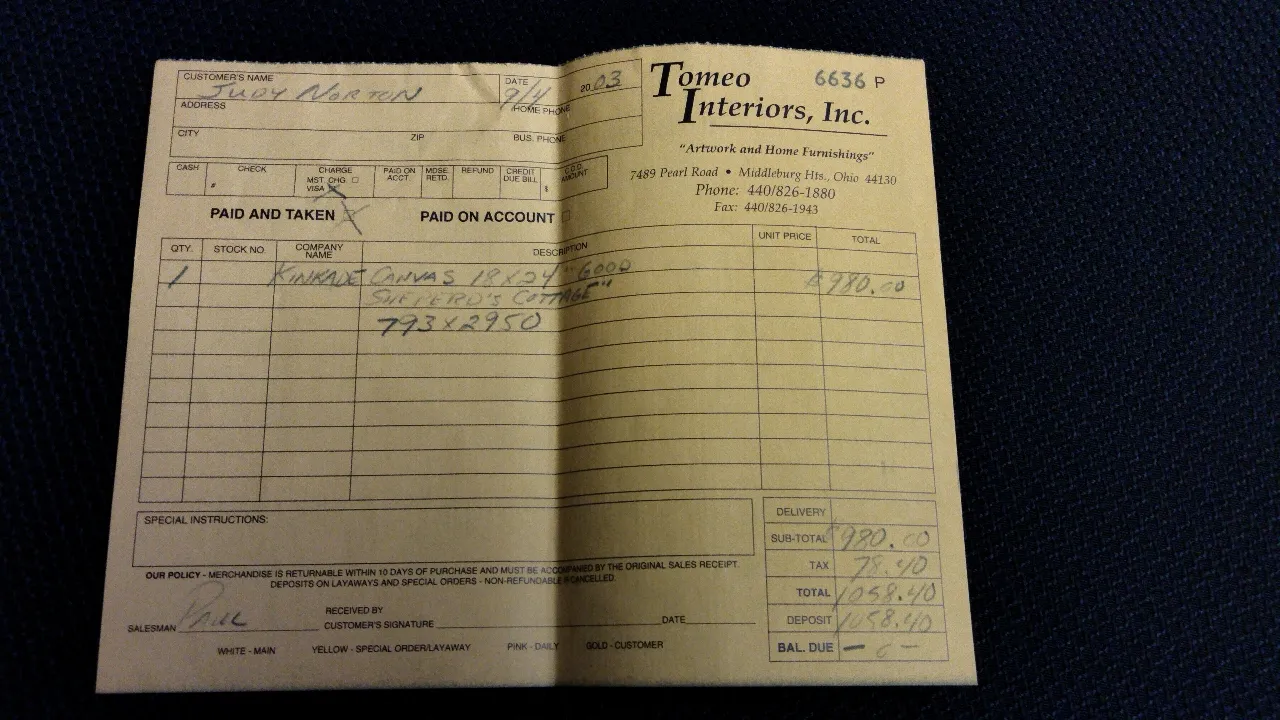 CUSTOMER'S NAME JUDY NORTON DATE 9/4 20 03
ADDRESS HOME PHONE
CITY ZIP BUS. PHONE
CASH CHECK # CHARGE MST. CHG. VISA X PAID ON ACCT. MDSE. RETD. REFUND CREDIT DUE BILL $ C.O.D. AMOUNT
PAID AND TAKEN X PAID ON ACCOUNT
Tomeo 6636 P
Interiors, Inc.
"Artwork and Home Furnishings"
7489 Pearl Road • Middleburg Hts., Ohio 44130
Phone: 440/826-1880
Fax: 440/826-1943
QTY. STOCK NO. COMPANY NAME DESCRIPTION UNIT PRICE TOTAL
1 KINKADE CANVAS 18X24 "GOOD $980.00
SHEPERD'S COTTAGE"
793X2950
SPECIAL INSTRUCTIONS:
DELIVERY
SUB-TOTAL $980.00
TAX 78.40
TOTAL 1058.40
DEPOSIT 1058.40
BAL. DUE - 0 -
OUR POLICY - MERCHANDISE IS RETURNABLE WITHIN 10 DAYS OF PURCHASE AND MUST BE ACCOMPANIED BY THE ORIGINAL SALES RECEIPT.
DEPOSITS ON LAYAWAYS AND SPECIAL ORDERS - NON-REFUNDABLE IF CANCELLED.
SALESMAN PAUL RECEIVED BY CUSTOMER'S SIGNATURE DATE
WHITE - MAIN YELLOW - SPECIAL ORDER/LAYAWAY PINK - DAILY GOLD - CUSTOMER